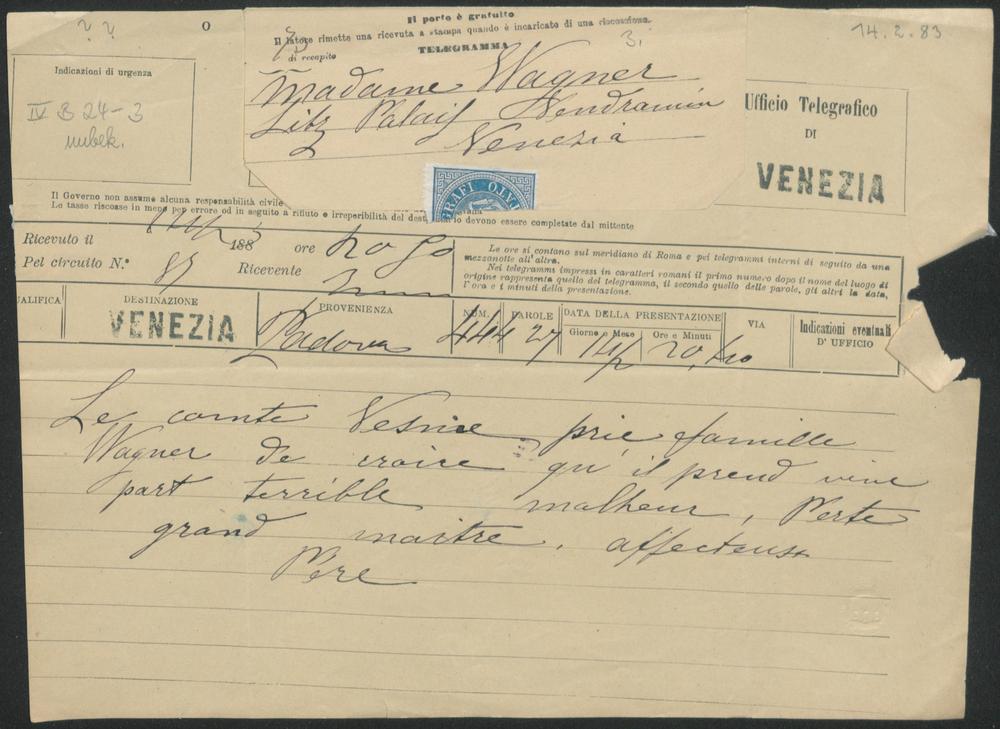 ? ?
O
14.2.83
Il porto è gratuito
Il fatore rimette una ricevuta a stampa quando è incaricato di una riscossione.
3.
di recapito
TELEGRAMMA
Madame Wagner
Litz Palais Vendramin
Venezia
Indicazioni di urgenza
IV B 24-3
unbek.
Ufficio Telegrafico
DI
VENEZIA
GRAFI
Il Governo non assume alcuna responsabilità civile
Le tasse riscosse in meno per errore od in seguito a rifiuto o irreperibilità del dest devono essere completate dal mittente
Ricevuto il 14/2 1883 ore 20 50
Pel circuito N.° 87 Ricevente
Le ore si contano sul meridiano di Roma e pei telegrammi interni di seguito da una
mezzanotte all'altra.
Nei telegrammi impressi in caratteri romani il primo numero dopo il nome del luogo di
origine rappresenta quello del telegramma, il secondo quello delle parole, gli altri la data,
l'ora e i minuti della presentazione.
UALIFICA DESTINAZIONE PROVENIENZA NUM. PAROLE DATA DELLA PRESENTAZIONE VIA Indicazioni eventuali
Giorno e Mese Ore e Minuti D' UFFICIO
VENEZIA Padova 444 27 14/2 20,40
Le comte Vesnie prie famille
Wagner de croire qu'il prend vive
part terrible malheur, Perte
grand maitre. affecteusx
Pere